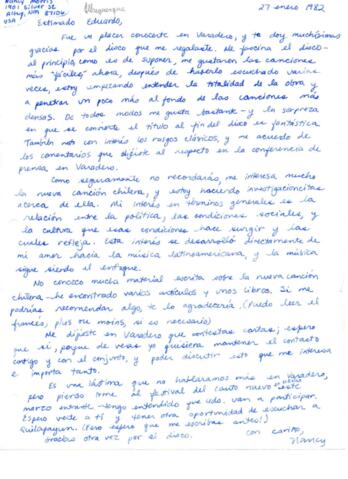 Nancy Morris
1901 Silver SE
Albuquerque
Albq, NM 87106
USA
27 enero 1982
Estimado Eduardo,
Fue un placer conocerte en Varadero, y te doy muchísimas
gracias por el disco que me regalaste. Me fascina el disco -
al principio, como es de suponer, me gustaron las canciones
más "fáciles"; ahora, después de haberlo escuchado varias
veces, estoy empezando entender la totalidad de la obra y
a penetrar un poco más al fondo de las canciones más
densas. De todos modos me gusta bastante - y la sorpresa
en que se convierte el título al fin del disco es fantástica.
También noté con interés los rasgos clásicos, y me acuerdo de
los comentarios que dijiste al respecto en la conferencia de
prensa, en Varadero.
Como seguramente no recordarás, me interesa mucho
la nueva canción chilena, y estoy haciendo investigacioncitas
acerca de ella. Mi interés en términos generales es la
relación entre la política, las condiciones sociales, y
la cultura que esas condiciones hace surgir y las
cuales refleja. Este interés se desarrolló directamente de
mi amor hacia la música latinoamericana, y la música
sigue siendo el enfoque.
No conozco mucha material escrita sobre la nueva canción
chilena - he encontrado varios artículos y unos libros. Si me
podrías recomendar algo, te lo agradecería. (Puedo leer el
francés, plus ou moins, si es necesario)
Me dijiste en Varadero que contestas cartas; espero
que sí, porque de veras yo quisiera mantener el contacto
contigo y con el conjunto, y poder discutir esto que me interesa
e importa tanto.
Es una lástima que no hablaramos más en Varadero,
pero pienso irme al festival del canto nuevo este
marzo entrante - tengo entendido que Uds. van a participar.
Espero verte a ti y tener otra oportunidad de escuchar a
Quilapayun. (Pero espero que me escribas antes!)
Gracias otra vez por el disco.
con cariño,
Nancy